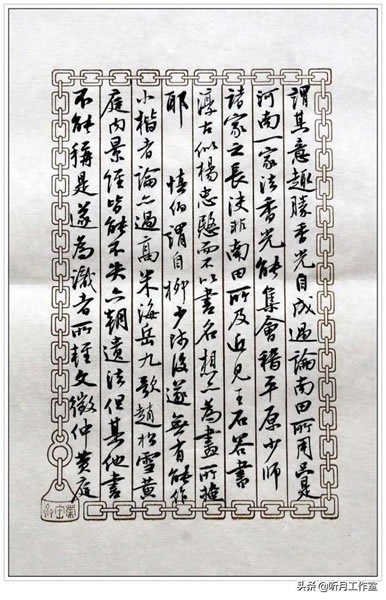 謂其意趣勝香光自成過論南田所用只是
河南一家法香光能集會稽平原少師
諸家之長決非南田所及近見王石谷書
淳古似楊忠愍而不以書名想亦為畫所掩
耶 情伯謂自柳少師後遂無有能作
小楷者論亦過高米海岳九歌趙松雪黃
庭內景經皆能不失六朝遺法但其他書
不能稱是遂為識者所輕文徵仲黃庭
头条 @听月工作室